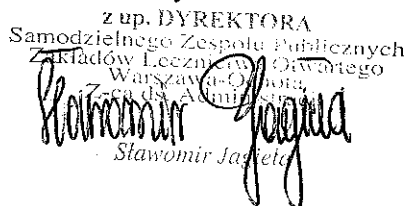 z up. DYREKTORA
Samodzielnego Zespołu Publicznych
Zakładów Lecznictwa Otwartego
Warszawa-Ochota
Z-ca ds. Administ
Sławomir Jagieła
Sławomir Jagieła